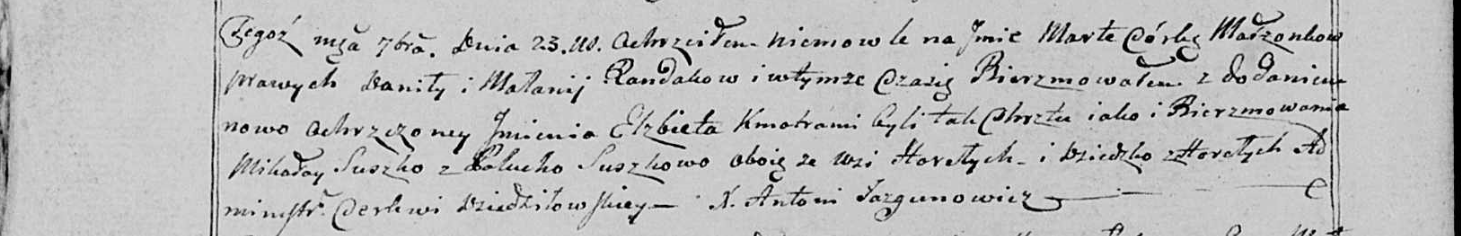 Tegoż mca 7bra. Dnia 23. W. ochrzciłem niemowle na Jmie Marte Córkę Małżonkow
prawych Daniły i Małanij Randakow i wtymże Czasię Bierzmowałem z dodaniem
nowo ochrzczoney Jmienia Elzbieta Kmotrami byli tak Chrztu iako i Bierzmowania
Mikołay Suszko z Połucho Suszkowo oboię ze wsi Horełych i Dziedzko z Horełych Ad
ministr. Cerkwi Dziedziłowskiey X. Antoni Jazgunowicz